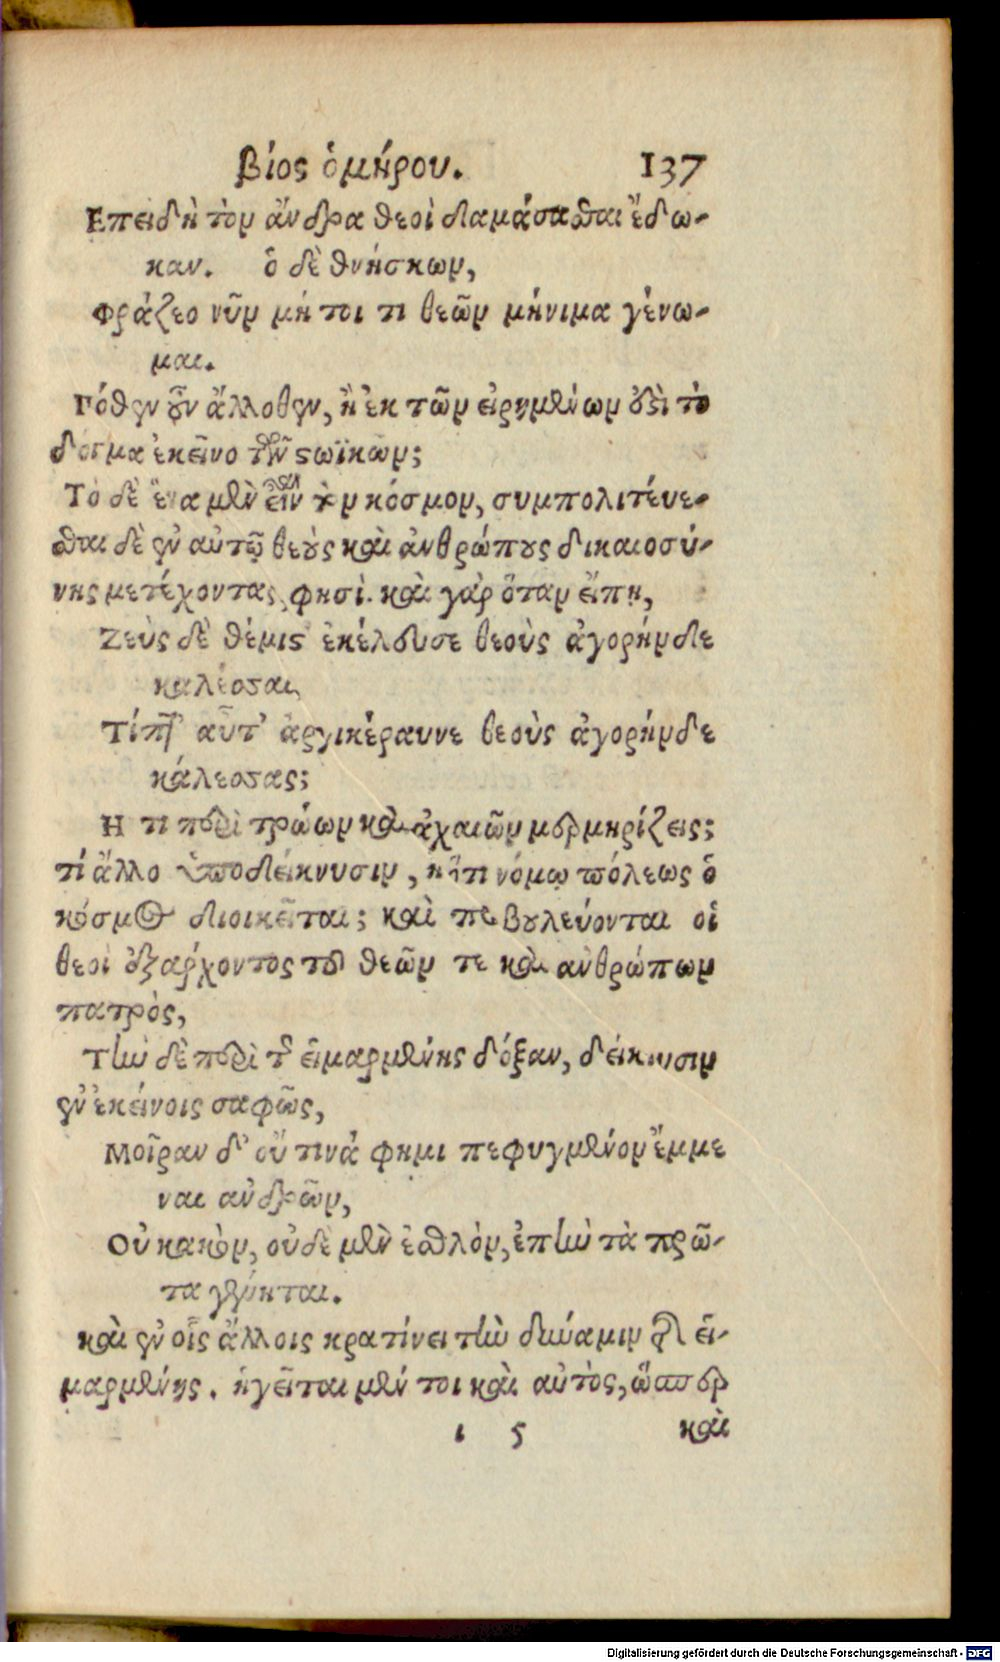 βίος ὁμήρου. 137
Επειδὴ τὸν ἄνδρα θεοὶ δαμάσασθαι ἔδω-
καν. ὁ δὲ θνήσκων,
Φράζεο νῦν μή τοι τι θεῶν μήνιμα γένω-
μαι.
Πόθεν οὖν ἄλλοθεν, ἢ ἐκ τῶν εἰρημένων ὅδι τὸ
δόγμα ἐκεῖνο τῶν στωϊκῶν;
Τὸ δὲ ἕνα μὲν εἶναι τὸν κόσμον, συμπολιτεύε-
σθαι δὲ ἐν αὐτῷ θεοὺς καὶ ἀνθρώπους δικαιοσύ-
νης μετέχοντας, φησί. καὶ γὰρ ὅταν εἴπῃ,
Ζεὺς δὲ θέμιστ ἐκέλευσε θεοὺς ἀγορήνδε
καλέσσαι,
Τίπτ' αὖτ' ἀργικέραυνε θεοὺς ἀγορήνδε
κάλεσσας;
Η τι περὶ τρώων καὶ ἀχαιῶν μερμηρίζεις;
τί ἄλλο ὑποδείκνυσιν, ἢ ὅτι νόμῳ πόλεως ὁ
κόσμος διοικεῖται; καὶ προβουλεύονται οἱ
θεοὶ ἐξάρχοντος τοῦ θεῶν τε καὶ ἀνθρώπων
πατρὸς,
Τὴν δὲ περὶ τῆς εἱμαρμένης δόξαν, δείκνυσιν
ἐν ἐκείνοις σαφῶς,
Μοῖραν δ' οὔ τινά φημι πεφυγμένον ἔμμε
ναι ἀνδρῶν,
Οὐ κακὸν, οὐδὲ μὲν ἐσθλόν, ἐπὴν τὰ πρῶ-
τα γένηται.
καὶ ἐν οἷς ἄλλοις κρατίνει τὴν δύναμιν τῆς εἱ-
μαρμένης. ἡγεῖται μέν τοι καὶ αὐτὸς, ὥσπερ
ι 5 καὶ
Digitalisierung gefördert durch die Deutsche Forschungsgemeinschaft - DFG